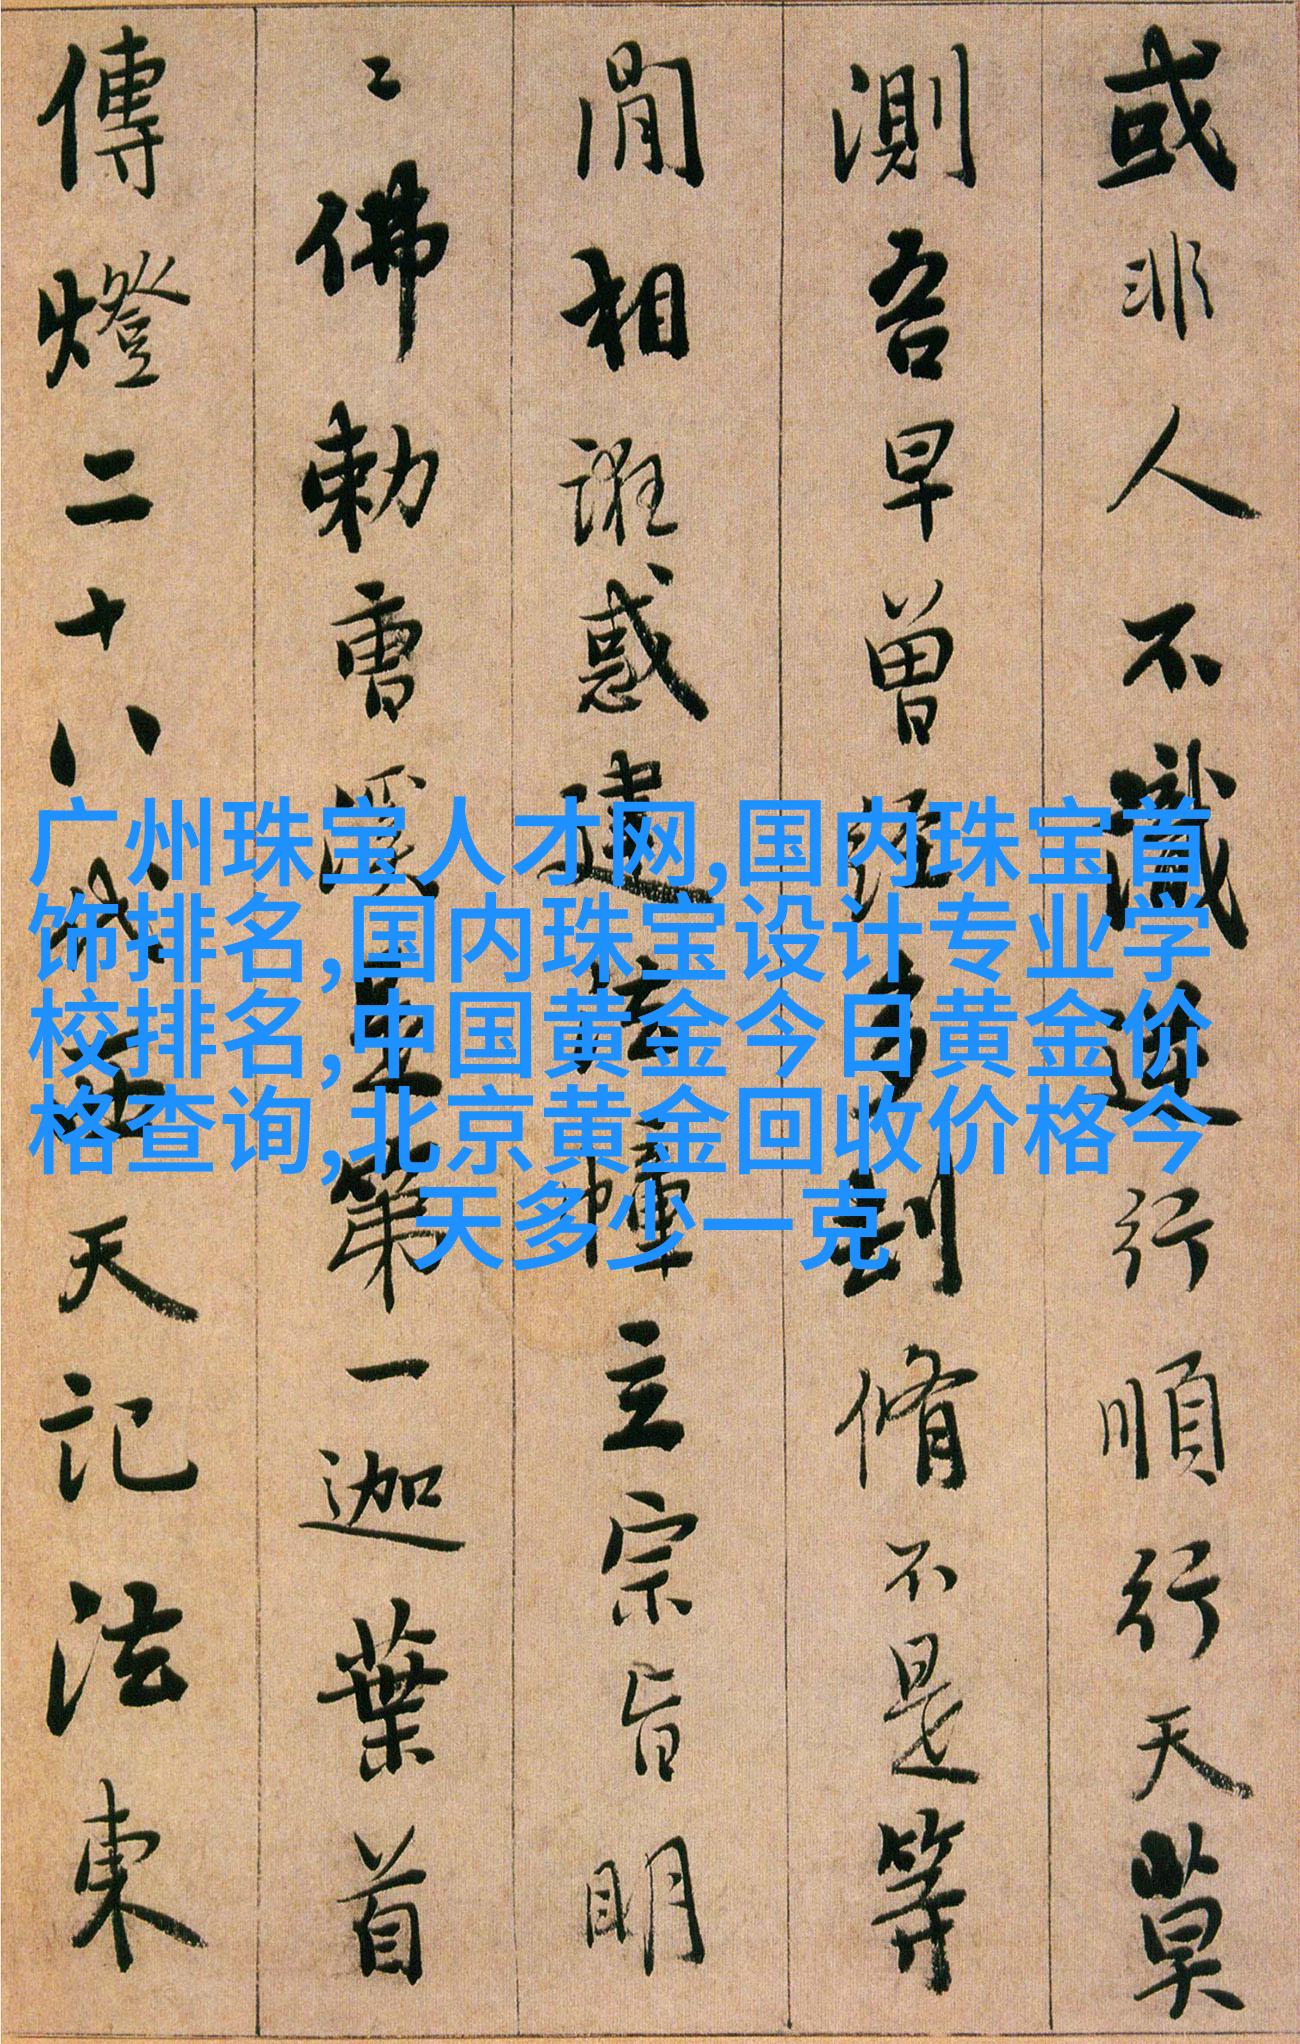 或非人不識逆行順行天莫
測吾早曾經多刦脩不是等
閒相誑惑建法幢立宗旨明
〻佛勅曹溪是第一迦葉首
傳燈二十八代西天記法東
广州珠宝人才网,国内珠宝首
饰排名,国内珠宝设计专业学
校排名,中国黄金今日黄金价
格查询,北京黄金回收价格今
天多少一克